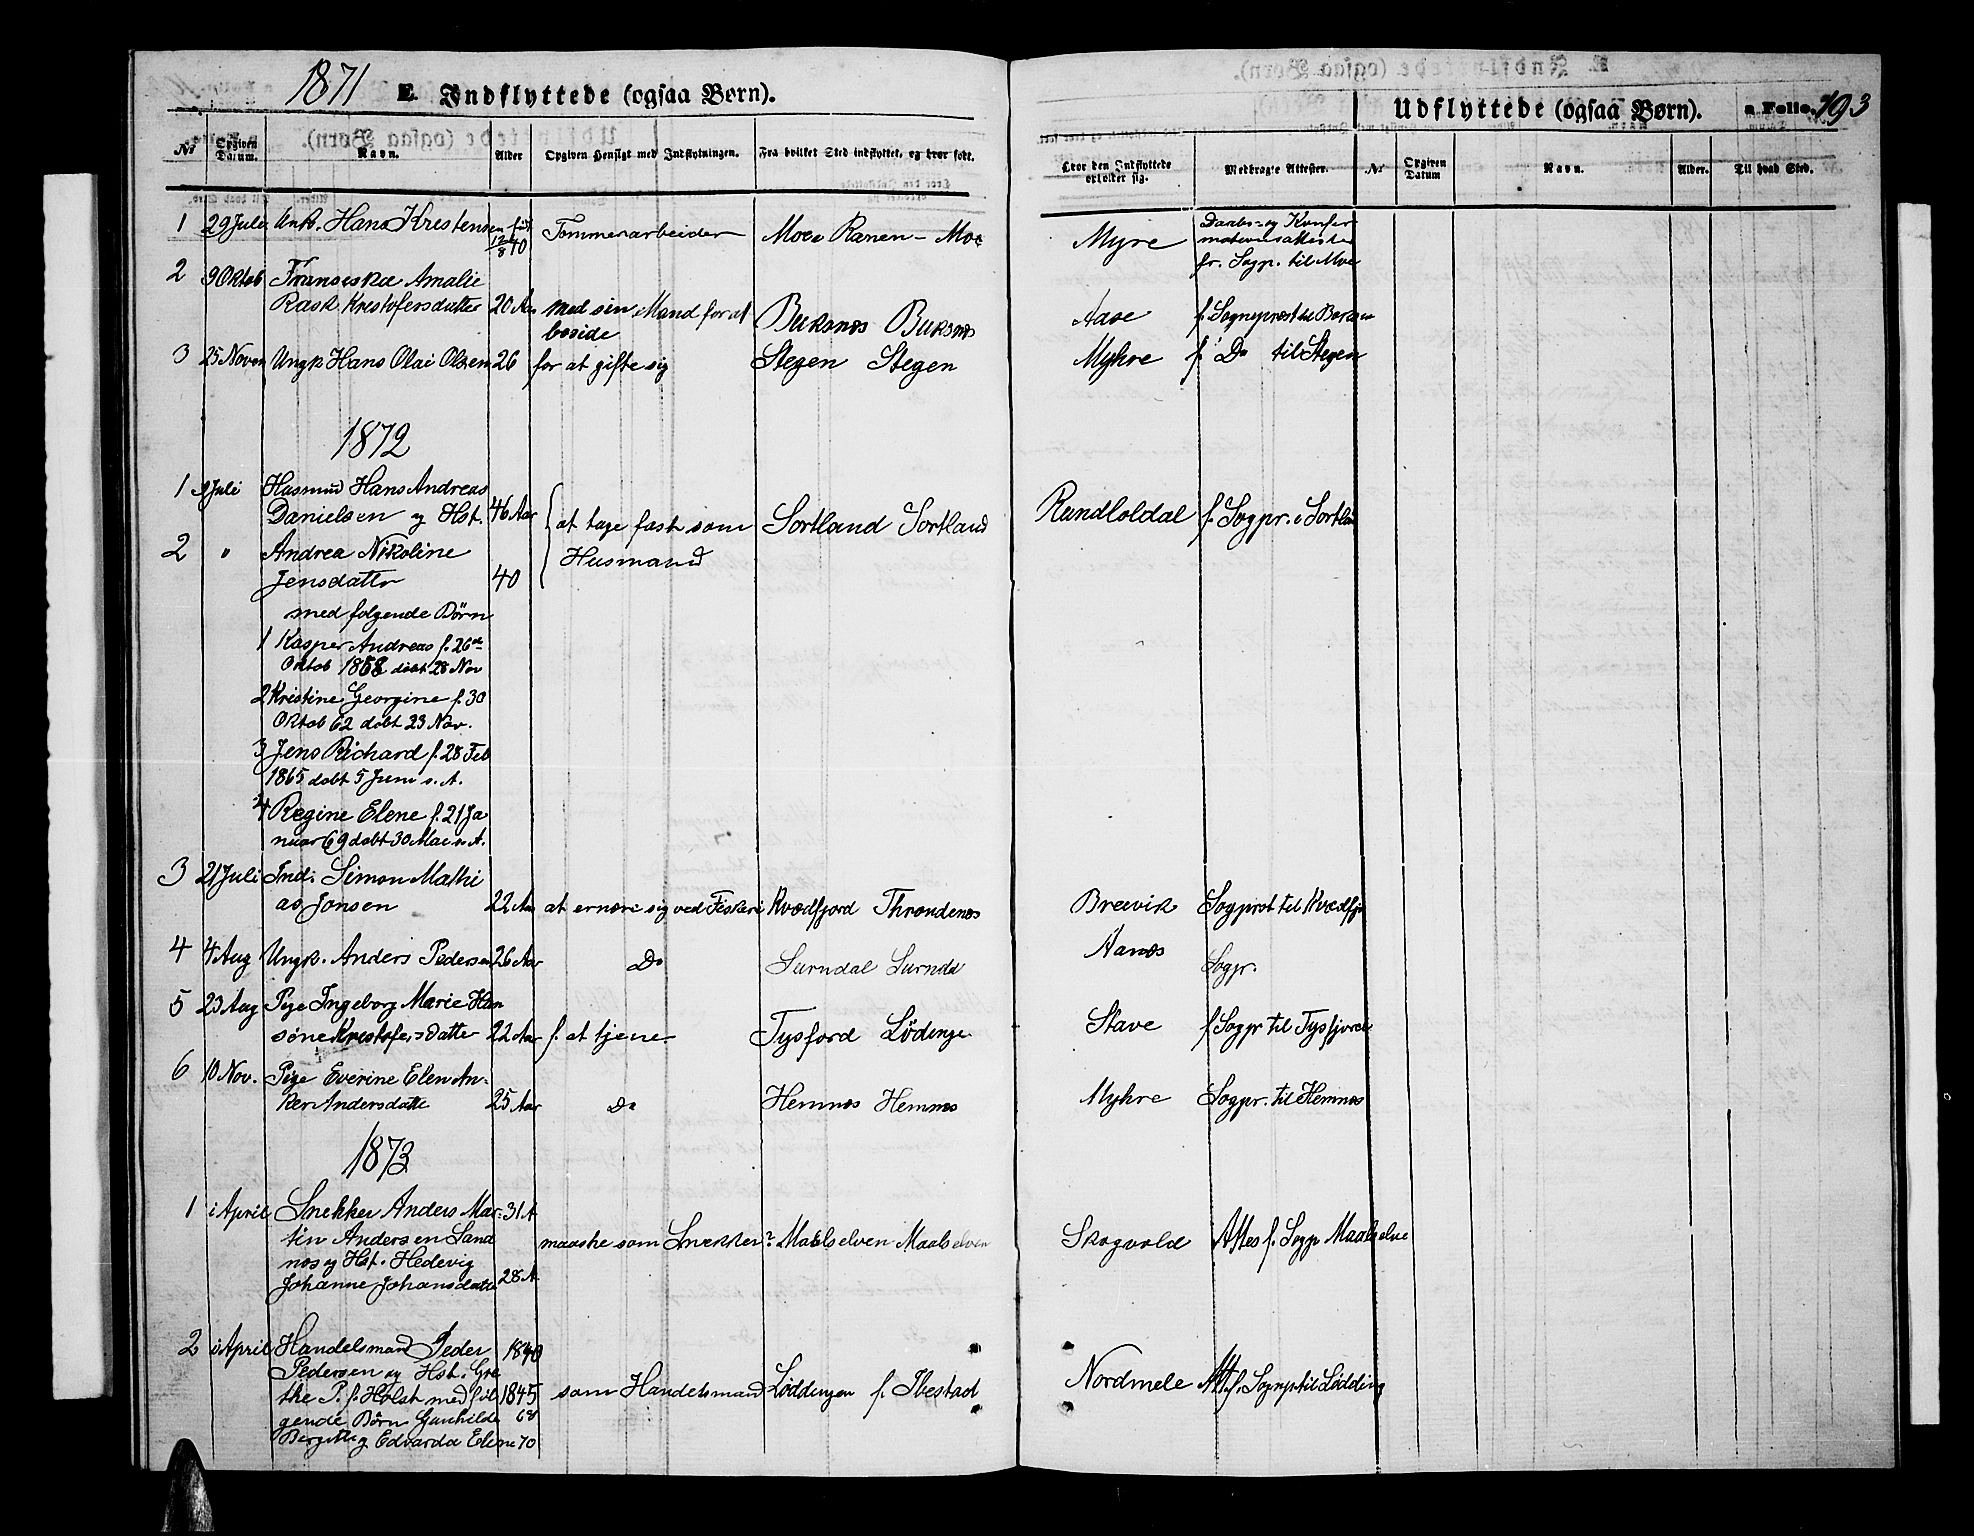 1871 E. Indflyttede (ogsaa Børn).
Udflyttede (ogsaa Børn). a Folio. 193
Nr Opgiven Datum. Navn. Alder Opgiven Hensigt med Indflytningen. Fra hvilket Sted indflyttet, og hvor født.
Hvor den Indflyttede opholder sig. Medbragte Attester. Nr Opgiven Datum Navn. Alder. Til hvad Sted.
1 29 Juli Unk. Hans Kristensen født 12/8 40 Tømmerarbeider Moe i Ranen - Moe Myre Daabs- og Konfirmationsattester fr. Sogp. til Moe
2 9 Oktob Fransiska Amalie
Rask Kristofersdatter 20 Aar med sin Mand for at boside Buksnes Buksnes Aase f. Sogneprest til Borge
3 25 Novem Ungk Hans Olai Olsen 26 for at gifte sig Stegen Stegen Myhre f. Do til Stegen
1872
1 9 Juli Husmd Hans Andreas
Danielsen og Hst. 46 Aar at tage fast som Sortland Sortland f. Sogpr. i Sortland
2 " Andrea Nikoline Husmand
Jensdatter 40
med følgende Børn
1 Kasper Andreas f. 26de
Oktob 1858 døbt 28 Nov
2 Kristine Georgine f. 30
Oktob 62 døbt 23 Nov.
3 Jens Richard f. 28 Feb
1865 døbt 5 Juni s. A.
4 Regine Elene f. 21 Ja
nuar 69 døbt 30 Mai s. A.
3 21 Juli Ind. Simon Mathi
as Jonsen 22 Aar at ernære sig ved Fiskeri Kvædfjord Throndenes Breivik Sogprst til Kvædfj
4 4 Aug Ungk. Anders Pedersen 26 Aar Do Surndal Surndal Aanæs Sogpr.
5 23 Aug Pige Ingeborg Marie Han
sine Kristofersdatter 22 Aar f. at tjene Tysfjord Lødinge Stave f. Sogpr til Tysfjord
6 10 Nov. Pige Everine Elen An-
ker Andersdatte 25 Aar Do Hemnes Hemnes Myhre Sogpr. til Hemnes
1873
1 i April Snekker Anders Mar- 31 A
tin Andersen Sand maaske som Snekker? Maalselven Maalselven Skogvold Attes f. Sogp Maalselve
nes og Hst. Hedevig
Johanne Johansdatte 28 A
2 i April Handelsmand Peder 1840
Pedersen og Hst. Gre
the P. f. Holst med føl 1845 som Handelsmand Løddingen f. Ibestad Nordmele Att. f. Sognp til Lødding
gende Børn Gunhilde 68
Bergitte og Edvarda Elene 70